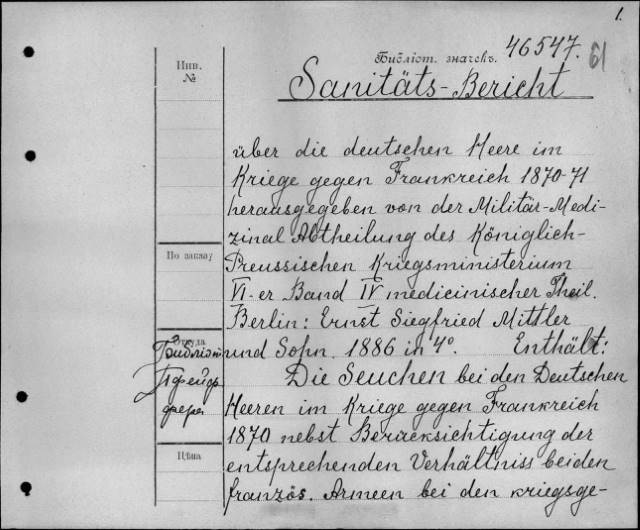 1.
Библіот. значекъ. 46547. 61
Инв.
№
Sanitäts-Bericht
über die deutschen Heere im
Kriege gegen Frankreich 1870-71
herausgegeben von der Militär-Medi-
zinal Abtheilung des Königlich-
По заказу
Preussischen Kriegsministerium
VI-er Band IV medicinischer Theil.
Berlin: Ernst Siegfried Mittler
Откуда
Библіот
und Sohn. 1886 in 4°. Enthält:
Die Seuchen bei den Deutschen
Heeren im Kriege gegen Frankreich
1870 nebst Berücksichtigung der
Цѣна
entsprechenden Verhältniss beiden
französ. Armeen bei den kriegsge-